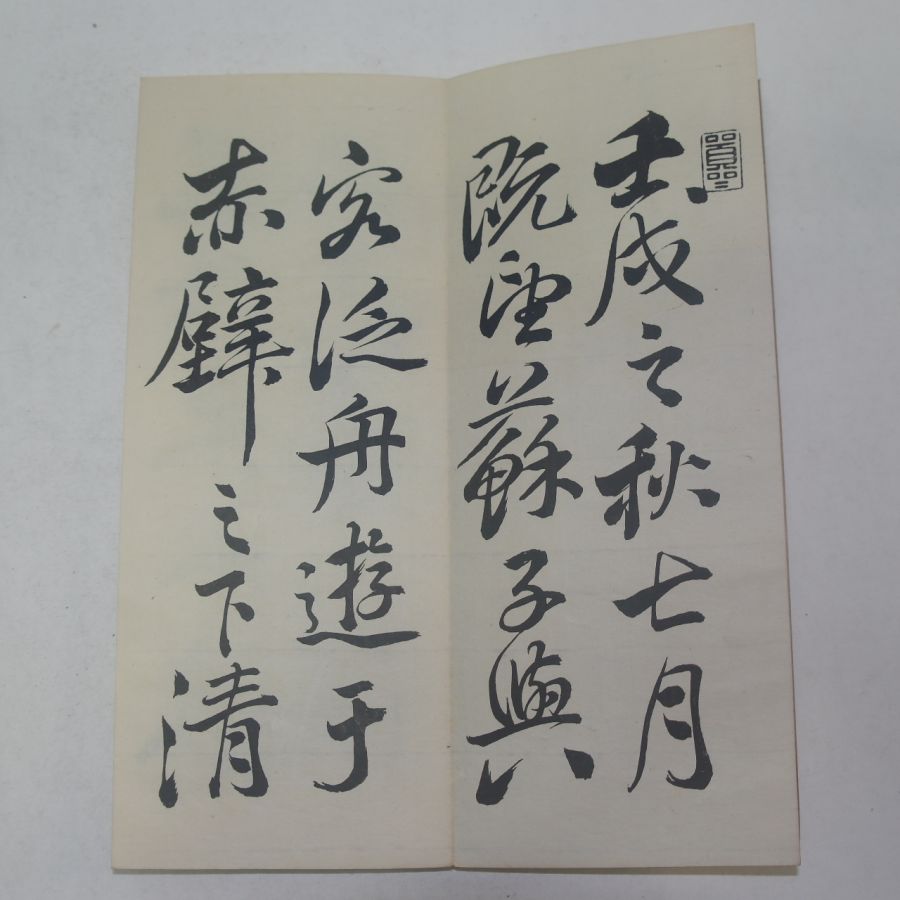 壬戌之秋七月
既望蘇子與
客泛舟遊于
赤壁之下清